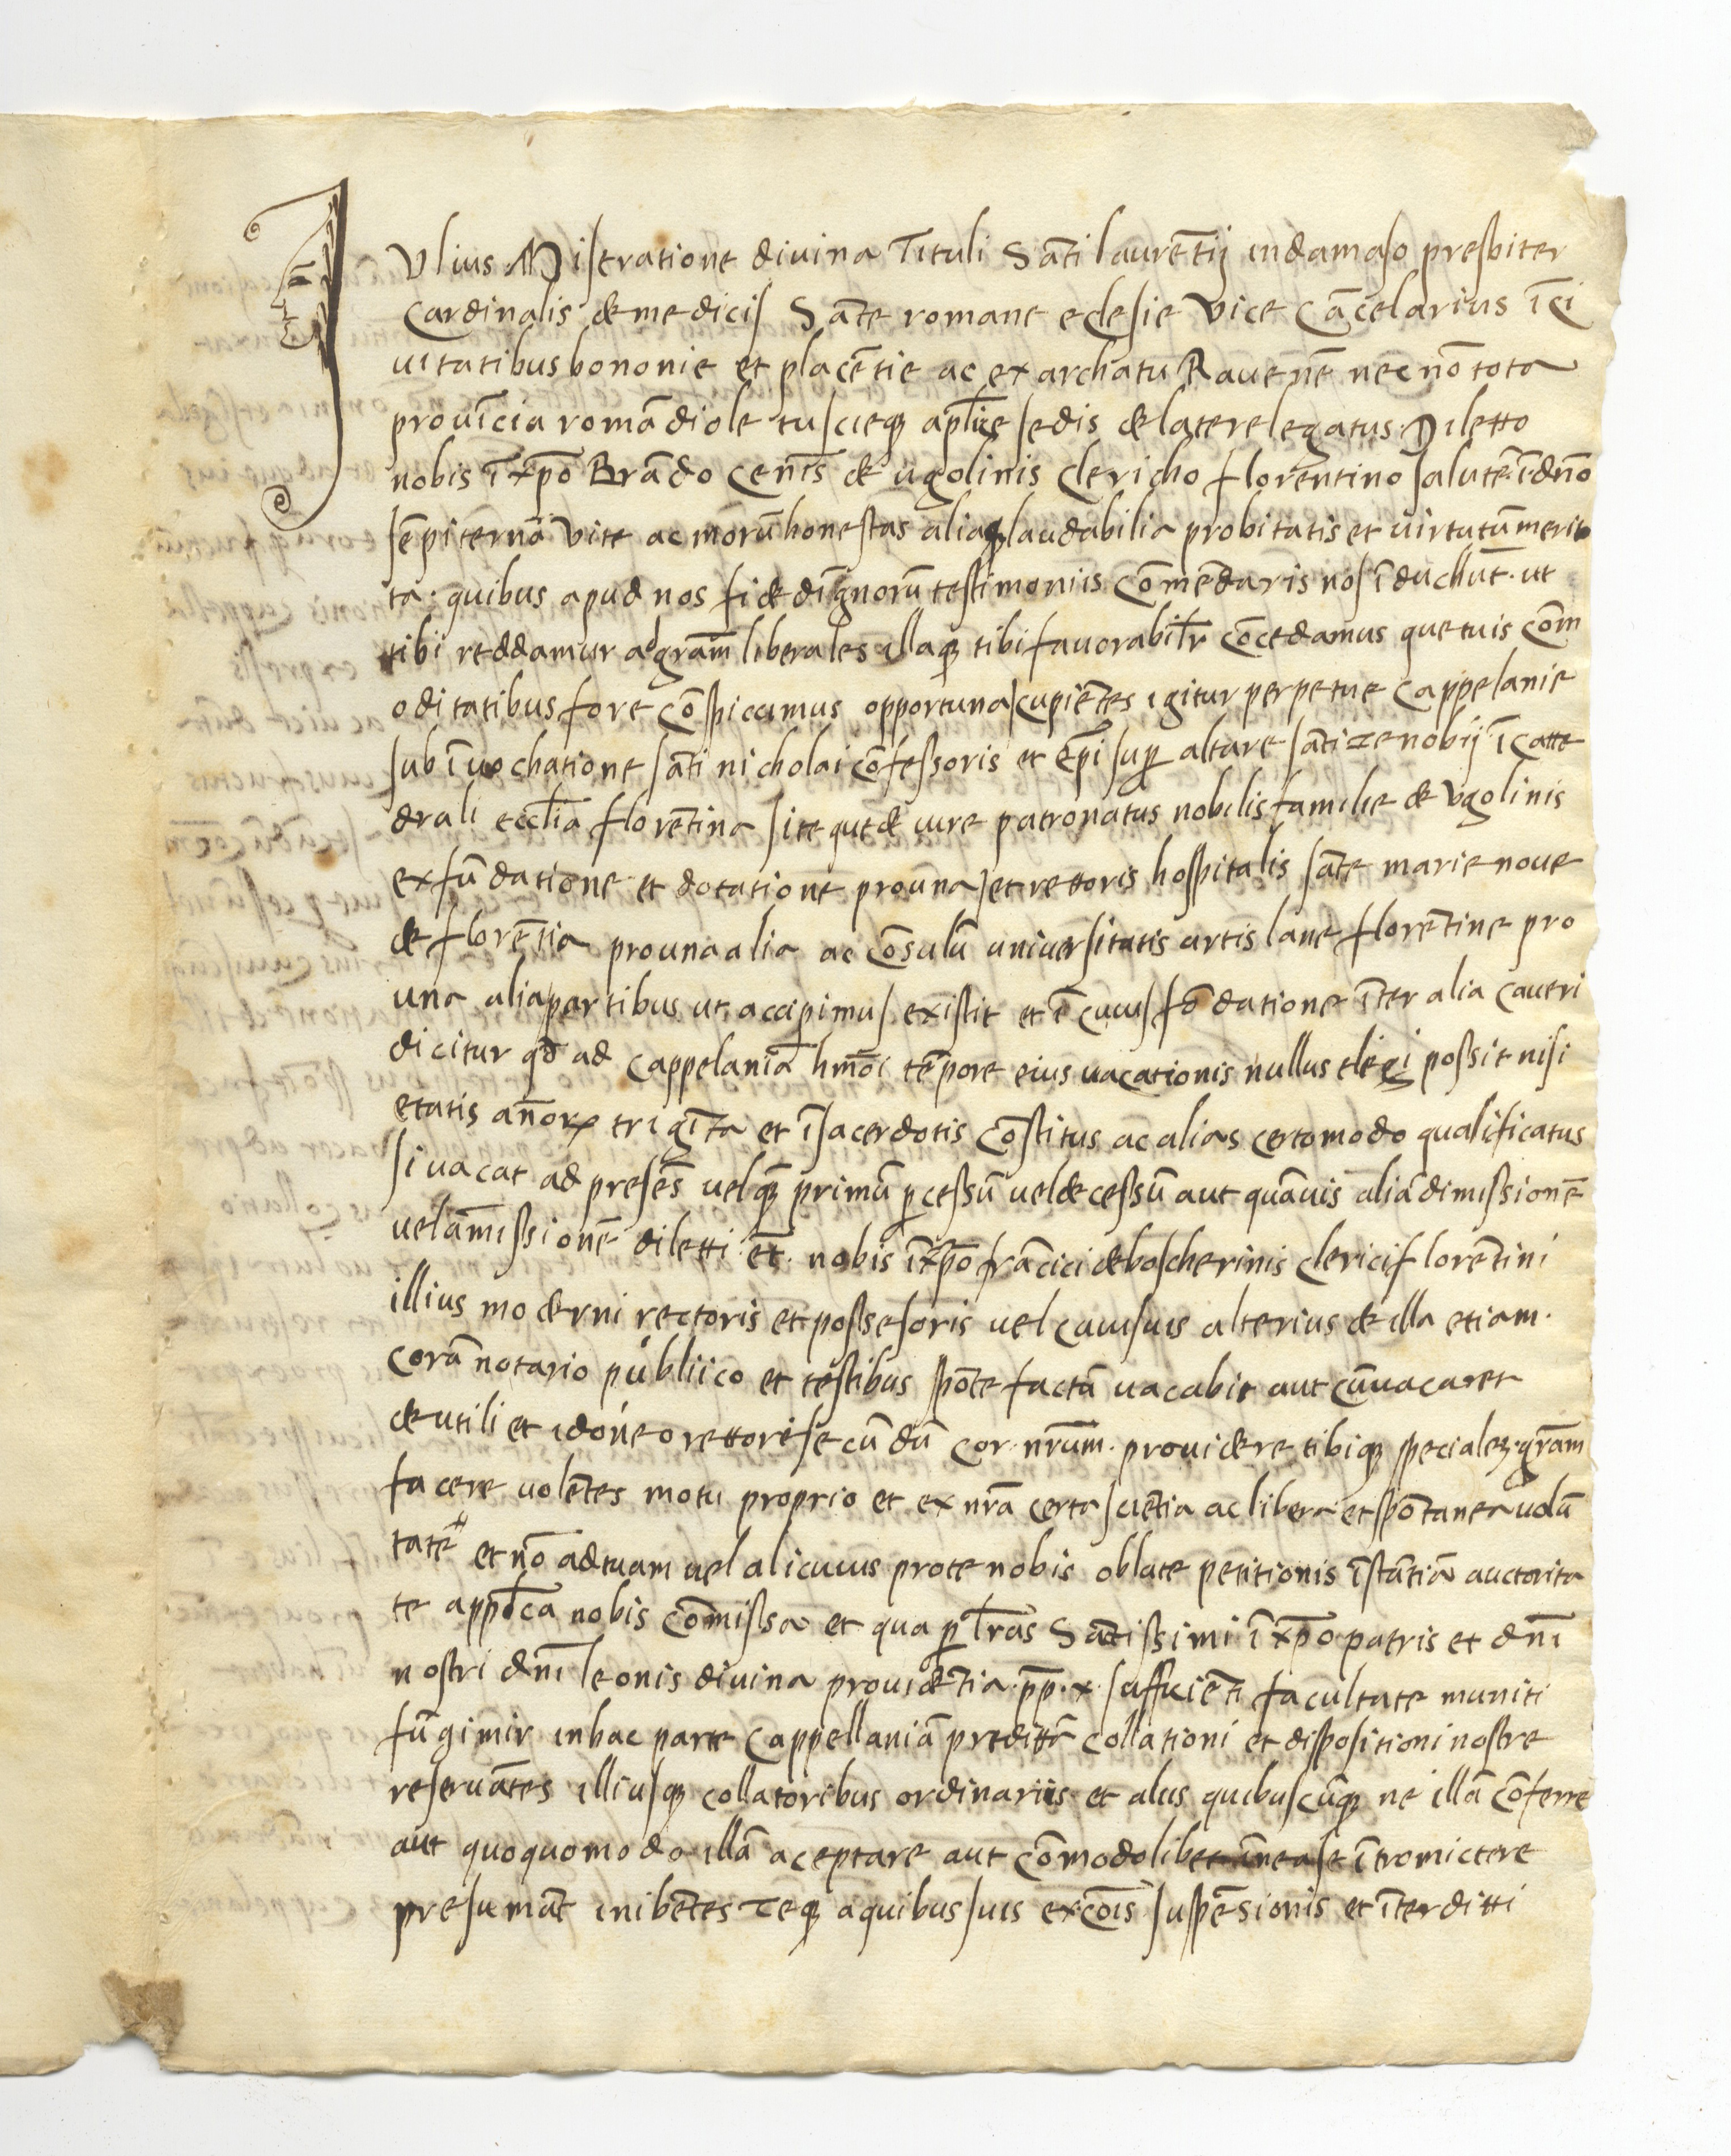 JVlius Mistratione divina Tituli Sāti laurētij indamaso presbiter
Cardinalis de medicis Sāte romane eclesie Vice Cācelarius ī Ci
uitatibus bononie et placētie ac exarchatu Rauenē necnō tota
prouīcia romādiole tuscieqȝ aplice sedis de latere legatus. Diletto
nobis ī xpo Brādo Cenīs de ugolinis Clericho florentino salutē. ī dno
sēpiternā Vite ac morū honestas aliaqȝ laudabilia probitatis et uirtutū meri
ta. quibus apud nos fide dīgnorū testimoniis Cōmēdaris nos īduchūt. ut
tibi reddamur ad grām liberales illaqȝ tibi fauorabilr Cōcedamus que tuis Cōm
oditatibus fore Cōspicimus opportuna cupiētes igitur perpetue Cappelanie
sub īuochatione sāti nicholai Cōfessoris et Epī suꝑ altare sāti zenobij ī Catte
drali ecclīa florētina site que de iure patronatus nobilis familie de Vgolinis
ex fūdatione et dotatione pro una et rettoris hospitalis sāte marie noue
de florētia pro una alia ac Cōsulū uniuersitatis artis lane florētine pro
una alia partibus ut accipimus existit et ī cuius fōdatione īter alia Caueri
dicitur qd ad Cappelaniā hmōi tēpore eius uacationis nullus elegi possit nisi
etatis añorꝝ trigīta et ī sacerdotis Cōstitus ac alias certo modo qualificatus
si uacat ad presēs uel qȝ primū ꝑ cessū uel decessū aut quāuis aliā dimissionē
uel āmissionē diletti. et. nobis ī xpo frācici de boscherinis Clerici florētini
illius moderni rectoris et possesoris uel cuiusuis alterius de illa etiam.
Corā notario publiico et testibus spōte factā uacabit aut cū uacaret
de utili et idoneo rettore secūdū cor. nrum. prouidere tibiqȝ specialeȝ. grām
facere uolētes motu proprio et ex nrā certa sciētia ac libera et spōtanea uolū
tatē et nō ad tuam uel alicuius pro te nobis oblate petitionis īstātiā auctorita
te applca nobis Cōmissa et qua ꝑ lras Sātissimi ī xpo patris et dnī
nostri dnī leonis diuina prouidētia. pp. x. sufficiētī facultate muniti
fūgimir in hac parte Cappellaniā predittā collationi et dispositioni nostre
reseruātes illiusqȝ collatoribus ordinariis et aliis quibuscūqȝ ne illā cōferre
aut quoquomodo illā aceptare aut Cōmodolibet īnea se ītromictere
presumāt inibētes Teqȝ a quibussuis excōis suspēsionis et īterditti